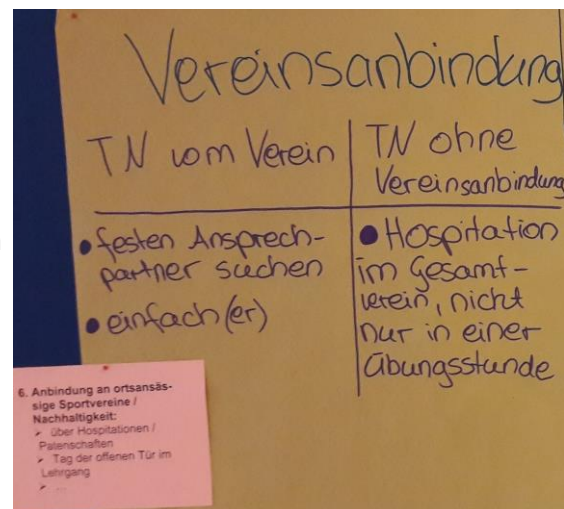 Vereinsanbindung
TN vom Verein
TN ohne
Vereinsanbindung
• festen Ansprech-
partner suchen
• einfach (er)
• Hospitation
im Gesamt-
verein, nicht
nur in einer
Übungsstunde
6. Anbindung an ortsansäs-
sige Sportvereine /
Nachhaltigkeit:
➢ über Hospitationen /
Patenschaften
➢ Tag der offenen Tür im
Lehrgang
➢ ...